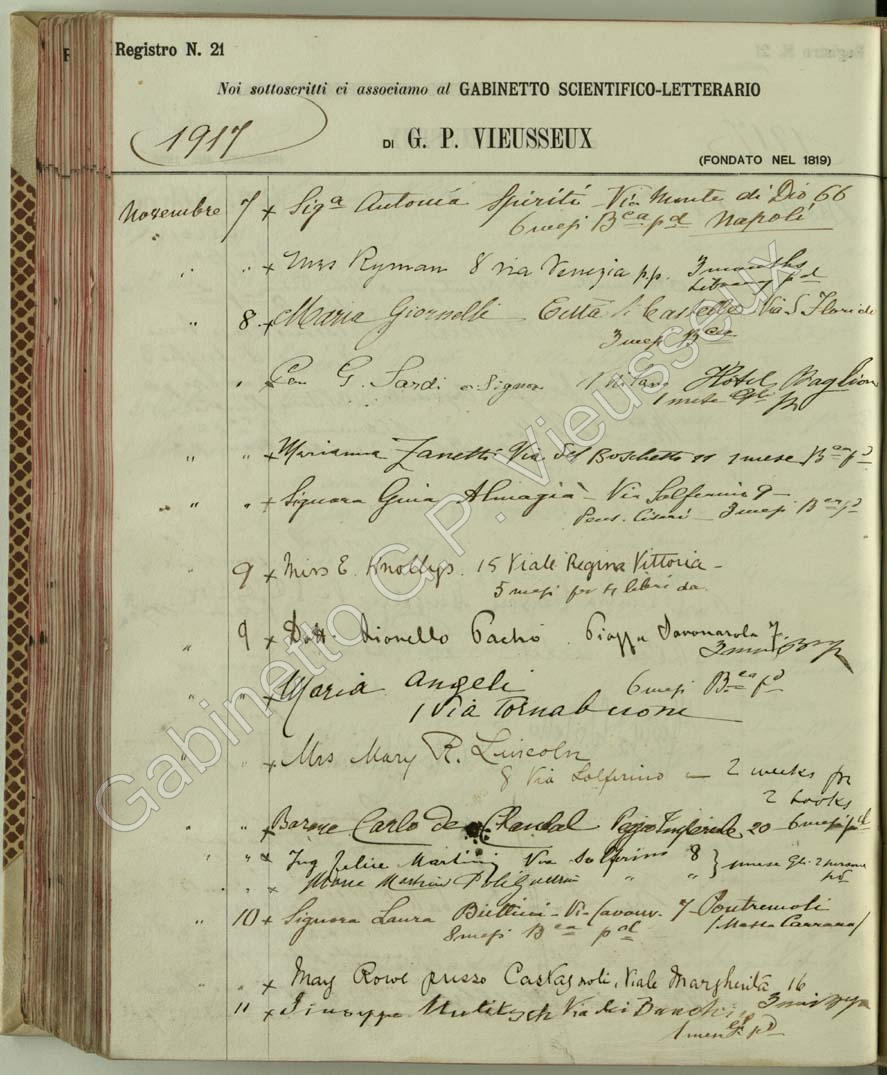 Registro N. 21
Noi sottoscritti ci associamo al GABINETTO SCIENTIFICO-LETTERARIO
1917
DI G. P. VIEUSSEUX
(FONDATO NEL 1819)
Novembre 7 x Sigª Antonia Spiriti Via Monte di Dio 66
6 mesi Bca pd Napoli
" " x Mrs Ryman 8 via Venezia p.p. 3 months
Library pd
" 8 x Maria Giornelli Città di Castello Via S. Florido
3 mesi Bca
" x G. Sardi e Signora Hotel Baglioni
1 mese
" " x Marianna Zanetti Via del Boschetto 1 mese Bca pd
" " x Signora Guia Almagià - Via Solferino 9 -
Pens. 3 mesi Bca pd
9 x Miss E. Knollys. 15 Viale Regina Vittoria -
5 mesi per 4 libri da.
" 9 x Dott. Lionello Piazza Savonarola 7.
3 mesi
" " x Maria Angeli 6 mesi Bca pd
1 Via Tornabuoni
" " x Mrs Mary R. Lincoln
8 Via Solferino - 2 weeks for
2 books
" " x Barone Carlo de Poggio Imperiale 20 6 mesi pd
" " x Ing Felice Martini Via Solferino 8 } 1 mese Gli 2 persone
" " x Martini " " pd
" 10 x Signora Laura Via Cavour 7 Pontremoli
8 mesi Bca pd (Massa Carrara)
" x May Rowe presso Castagnoli, Viale Margherita 16
11 x Giuseppe Via dei Banchi 3 mesi
1 mese pd
Gabinetto G.P. Vieusseux